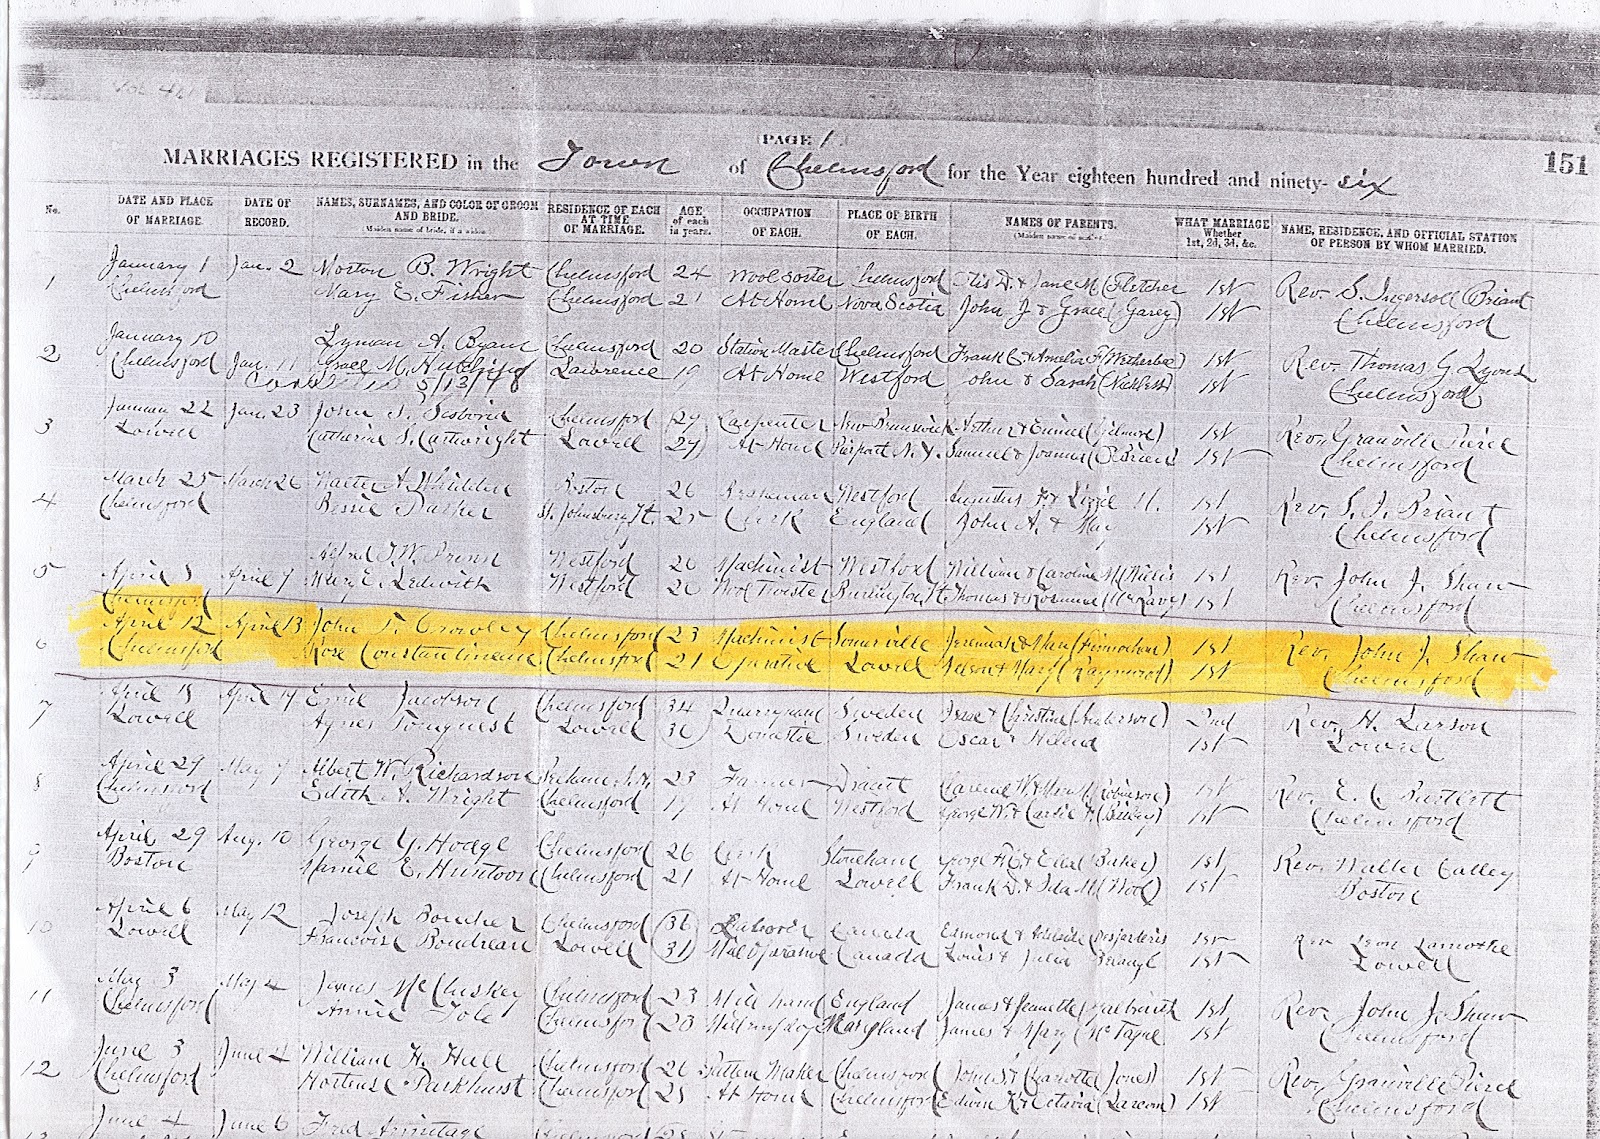 PAGE 1.
MARRIAGES REGISTERED in the Town of Chelmsford for the Year eighteen hundred and ninety-six
151
No. DATE AND PLACE OF MARRIAGE. DATE OF RECORD. NAMES, SURNAMES, AND COLOR OF GROOM AND BRIDE. (Maiden name of bride, if a widow.) RESIDENCE OF EACH AT TIME OF MARRIAGE. AGE of each in years. OCCUPATION OF EACH. PLACE OF BIRTH OF EACH. NAMES OF PARENTS. WHAT MARRIAGE Whether 1st, 2d, 3d, &c. NAME, RESIDENCE, AND OFFICIAL STATION OF PERSON BY WHOM MARRIED.
1 January 1 Jan. 2 Morton B. Wright Chelmsford 24 Wool Sorter Chelmsford Otis D. & Jane M. (Fletcher 1st Rev. S. Ingersoll Briant
Chelmsford Mary E. Fisher Chelmsford 21 At Home Nova Scotia John J. & Grace (Garey) 1st Chelmsford
2 January 10 Lyman A. Byam Chelmsford 20 Station Master Chelmsford Frank C. & Amelia F. (Wetherbee) 1st Rev. Thomas G. Lyons
Chelmsford Jan. 11 Grace M. Hutchins Lawrence 19 At Home Westford John & Sarah 1st Chelmsford
5/13/48
3 January 22 Jan. 23 John Chelmsford 29 Carpenter New Brunswick Arthur & (Gilmore) 1st Rev. Granville Pierce
Lowell Catherine S. Cartwright Lowell 29 At Home Pierpont N.Y. Samuel & Joanna (O'Brien) 1st Chelmsford
4 March 25 March 26 Walter A. Whidden Boston 26 Westford Augustus F. & Lizzie H. 1st Rev. S. I. Briant
Chelmsford Bessie Parker St. Johnsbury Vt. 25 Clerk England John A. & May 1st Chelmsford
5 April April 7 Alfred T. W. Westford 20 Machinist Westford William & Caroline M. 1st Rev. John J. Shaw
Chelmsford Mary Ledwith Westford 20 Burlington, Vt. Thomas & 1st Chelmsford
6 April 12 April 13 John F. Crowley Chelmsford 23 Machinist Somerville Jeremiah & Mary 1st Rev. John J. Shaw
Chelmsford Rose Constantineau Chelmsford 21 Operative Lowell Nelson & Mary (Raymond) 1st Chelmsford
7 April 15 April 17 Emil Jacobson Chelmsford 34 Quarryman Sweden Isaac & Christina (Anderson) 2nd Rev. H. Larson
Lowell Agnes Lowell Domestic Sweden Oscar & Helena 1st Lowell
8 April 29 May 7 Albert W. Richardson 23 Farmer Dracut Clarence W. & (Robinson) 1st Rev. E. C. Bartlett
Chelmsford Edith A. Wright Chelmsford 19 At Home Westford George W. & Carrie (Bailey) 1st Chelmsford
9 April 29 Aug. 10 George Y. Hodge Chelmsford 26 Clerk Stoneham George & (Baker) 1st Rev. Walter Calley
Boston Minnie E. Huntoon Chelmsford 21 At Home Lowell Frank D. & Ida M. (Wood) 1st Boston
10 April 6 May 12 Joseph Boucher Chelmsford 36 Laborer Canada Edmond & Adelaide 1st Rev. Leon Lamothe
Lowell Francoise Boudreau Lowell 31 Mill Operative Canada Louis & Julia 1st Lowell
11 May 3 May 4 James McCluskey Chelmsford 23 Mill hand England James & Jeanette (Galbraith 1st Rev. John J. Shaw
Chelmsford Annie Chelmsford 20 Maryland James & Mary (McTague 1st Chelmsford
12 June 3 June 4 William H. Hall Chelmsford 26 Pattern Maker Chelmsford John S. & Charlotte (Jones) 1st Rev. Granville Pierce
Chelmsford Hortense Parkhurst Chelmsford 25 At Home Chelmsford Edwin K. & Octavia (Larcom) 1st Chelmsford
June 4 June 6 Fred Armitage